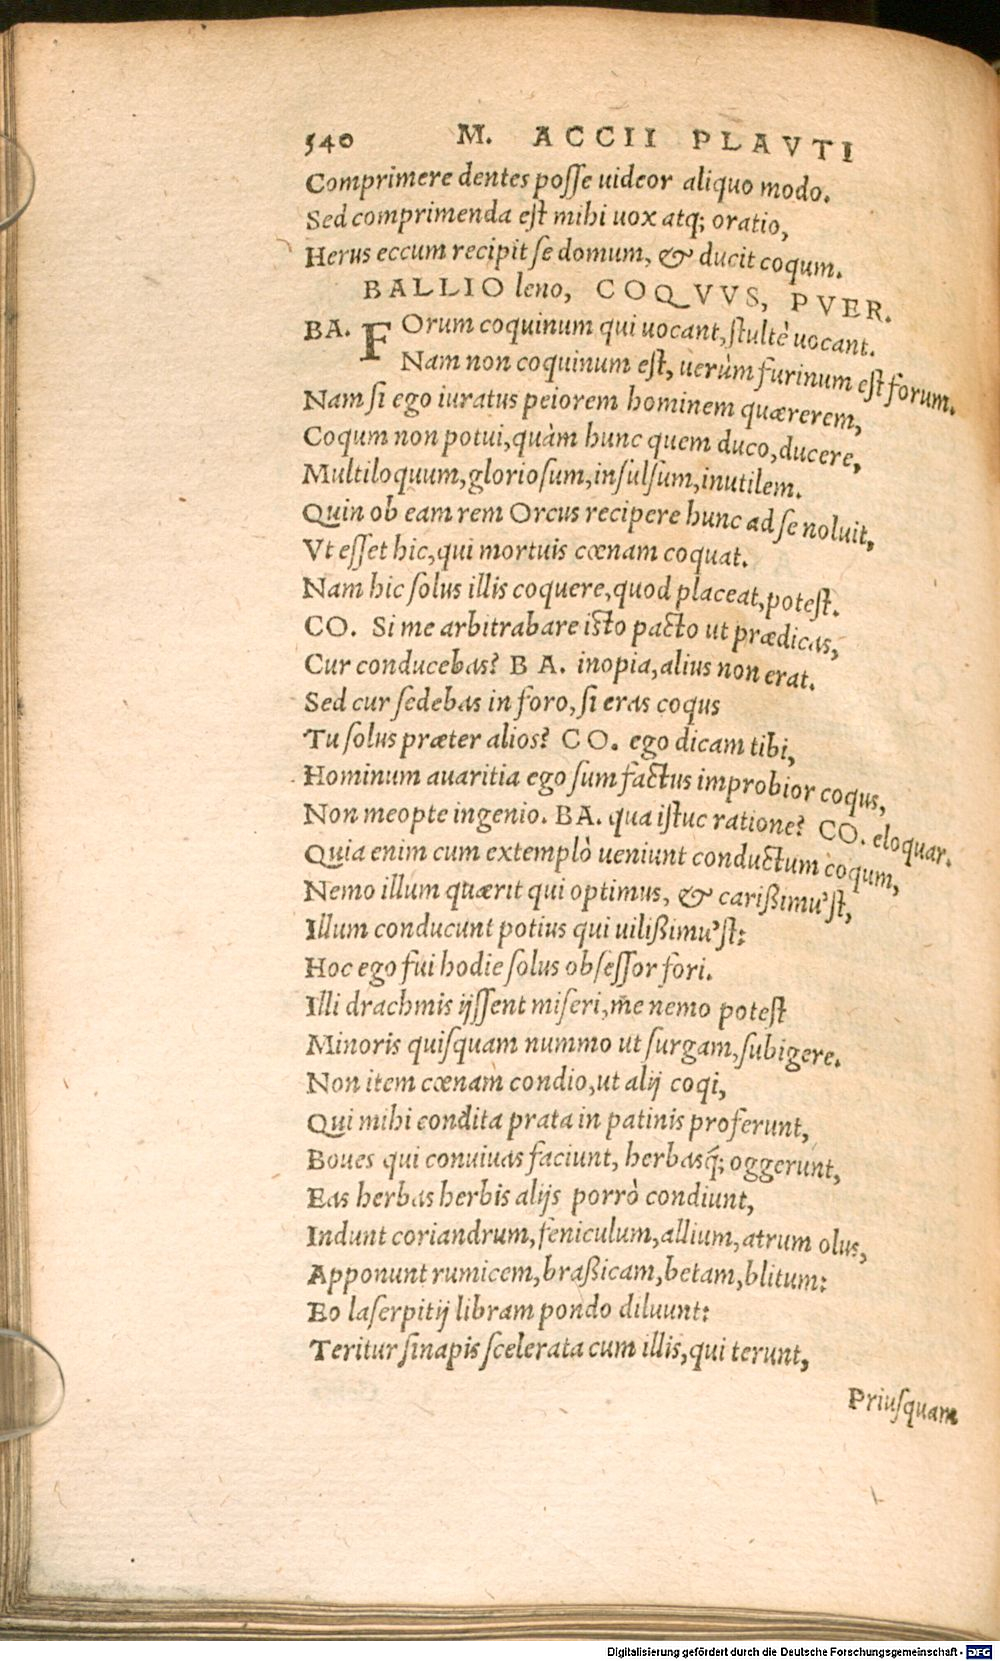 540 M. ACCII PLAVTI
Comprimere dentes posse uideor aliquo modo.
Sed comprimenda est mihi uox atq; oratio,
Herus eccum recipit se domum, & ducit coqum.
BALLIO leno, COQVVS, PVER.
BA. FOrum coquinum qui uocant, stultè uocant.
Nam non coquinum est, uerùm furinum est forum.
Nam si ego iuratus peiorem hominem quærerem,
Coqum non potui, quàm hunc quem duco, ducere,
Multiloquum, gloriosum, insulsum, inutilem.
Quin ob eam rem Orcus recipere hunc ad se noluit,
Vt esset hic, qui mortuis cœnam coquat.
Nam hic solus illis coquere, quod placeat, potest.
CO. Si me arbitrabare isto pacto ut prædicas,
Cur conducebas? BA. inopia, alius non erat.
Sed cur sedebas in foro, si eras coqus
Tu solus præter alios? CO. ego dicam tibi,
Hominum auaritia ego sum factus improbior coqus,
Non meopte ingenio. BA. qua istuc ratione? CO. eloquar.
Quia enim cum extemplò ueniunt conductum coqum,
Nemo illum quærit qui optimus, & carißimu'st,
Illum conducunt potius qui uilißimu'st:
Hoc ego fui hodie solus obsessor fori.
Illi drachmis ijssent miseri, m̃e nemo potest
Minoris quisquam nummo ut surgam, subigere.
Non item cœnam condio, ut alij coqi,
Qui mihi condita prata in patinis proferunt,
Boues qui conuiuas faciunt, herbasq́; oggerunt,
Eas herbas herbis alijs porrò condiunt,
Indunt coriandrum, feniculum, allium, atrum olus,
Apponunt rumicem, braßicam, betam, blitum:
Eo laserpitij libram pondo diluunt:
Teritur sinapis scelerata cum illis, qui terunt,
Priusquam
Digitalisierung gefördert durch die Deutsche Forschungsgemeinschaft - DFG